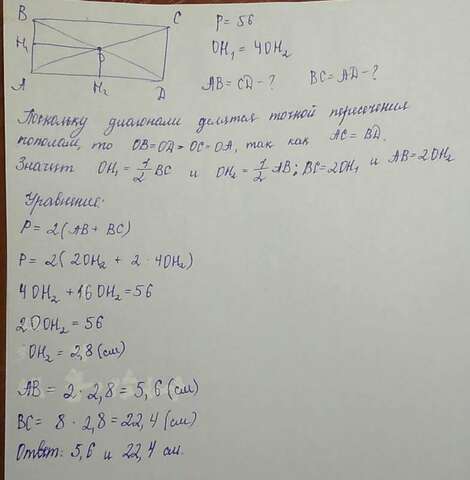 B C P = 56
H₁ O OH₁ = 4OH₂
A H₂ D AB = CD - ? BC = AD - ?
Поскольку диагонали делятся точкой пересечения
пополам, то OB = OD = OC = OA, так как AC = BD.
Значит OH₁ = 1/2 BC и OH₂ = 1/2 AB; BC = 2OH₁ и AB = 2OH₂
Уравнение:
P = 2(AB + BC)
P = 2(2OH₂ + 2 · 4OH₂)
4OH₂ + 16OH₂ = 56
20OH₂ = 56
OH₂ = 2,8 (см)
AB = 2 · 2,8 = 5,6 (см)
BC = 8 · 2,8 = 22,4 (см)
Ответ: 5,6 и 22,4 см.